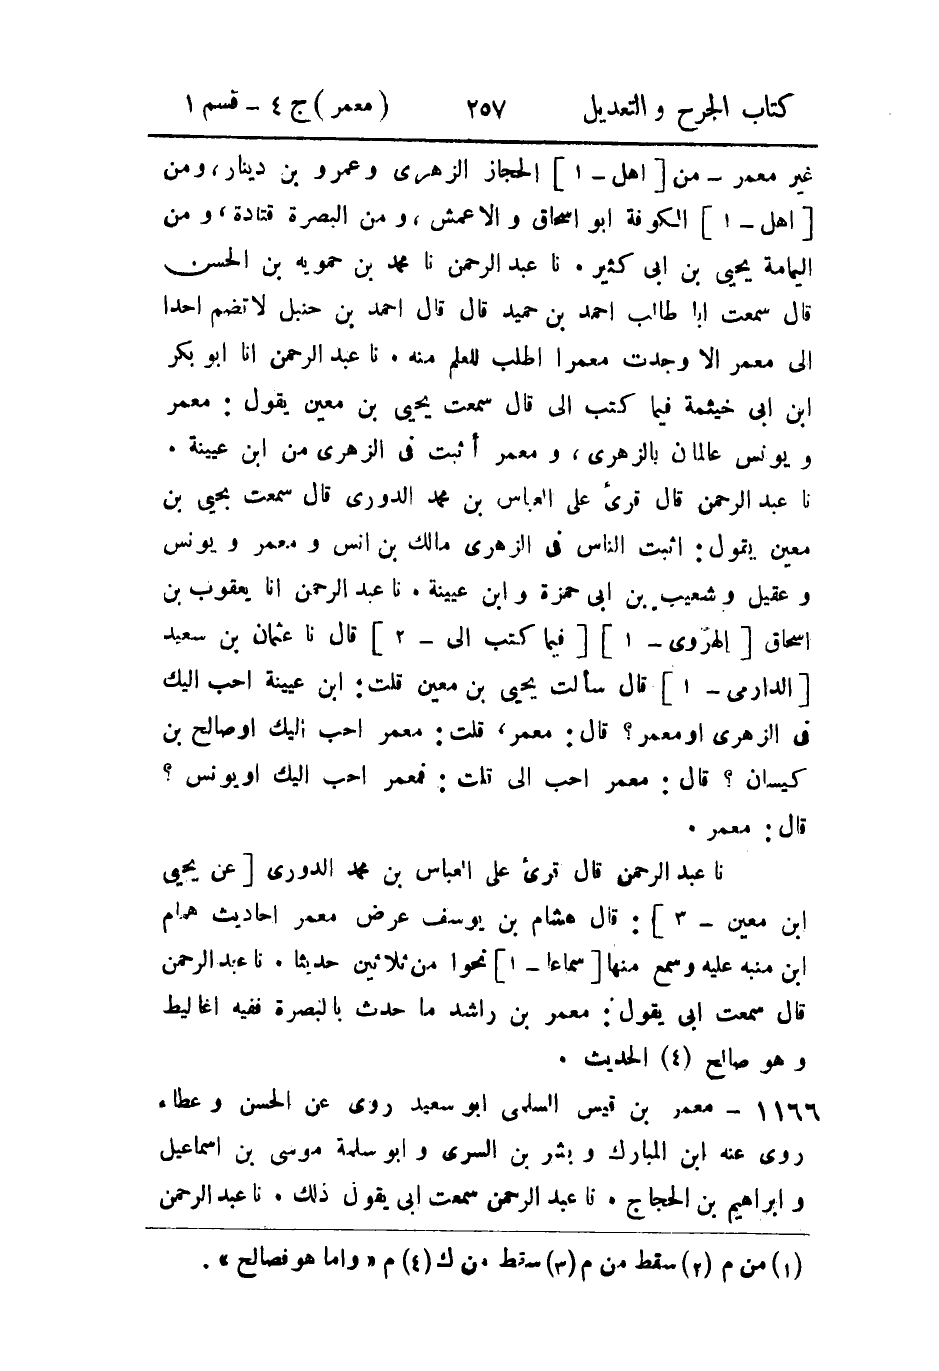 كتاب الجرح والتعديل ٢٥٧ (معمر) ج ٤ - قسم ١
غير معمر - من [ اهل - ١ ] الحجاز الزهرى وعمرو بن دينار، ومن
[ اهل - ١ ] الكوفة ابو اسحاق والاعمش، ومن البصرة قتادة، ومن
اليمامة يحيى بن ابى كثير . نا عبد الرحمن نا محمد بن حمويه بن الحسن
قال سمعت ابا طالب احمد بن حميد قال قال احمد بن حنبل لا تضم احدا
الى معمر الا وجدت معمرا اطلب للعلم منه . نا عبد الرحمن انا ابو بكر
ابن ابى خيثمة فيما كتب الى قال سمعت يحيى بن معين يقول : معمر
ويونس عالمان بالزهرى، ومعمر أثبت فى الزهرى من ابن عيينة .
نا عبد الرحمن قال قرئ على العباس بن محمد الدورى قال سمعت يحيى بن
معين يقول : اثبت الناس فى الزهرى مالك بن انس ومعمر ويونس
وعقيل وشعيب بن ابى حمزة وابن عيينة . نا عبد الرحمن انا يعقوب بن
اسحاق [ الهروى - ١ ] [ فيما كتب الى - ٢ ] قال نا عثمان بن سعيد
[ الدارمى - ١ ] قال سألت يحيى بن معين قلت : ابن عيينة احب اليك
فى الزهرى او معمر ؟ قال : معمر، قلت : معمر احب اليك او صالح بن
كيسان ؟ قال : معمر احب الى قلت : فمعمر احب اليك او يونس ؟
قال : معمر .
نا عبد الرحمن قال قرئ على العباس بن محمد الدورى [ عن يحيى
ابن معين - ٣ ] : قال هشام بن يوسف عرض معمر احاديث همام
ابن منبه عليه وسمع منها [ سماعا - ١ ] نحوا من ثلاثين حديثا . نا عبد الرحمن
قال سمعت ابى يقول : معمر بن راشد ما حدث بالبصرة ففيه اغاليط
وهو صالح (٤) الحديث .
١١٦٦ - معمر بن قيس السلمى ابو سعيد روى عن الحسن وعطاء
روى عنه ابن المبارك وبشر بن السرى وابو سلمة موسى بن اسماعيل
وابراهيم بن الحجاج . نا عبد الرحمن سمعت ابى يقول ذلك . نا عبد الرحمن
(١) من م (٢) سقط من م (٣) سقط من ك (٤) م « واما هو فصالح » .